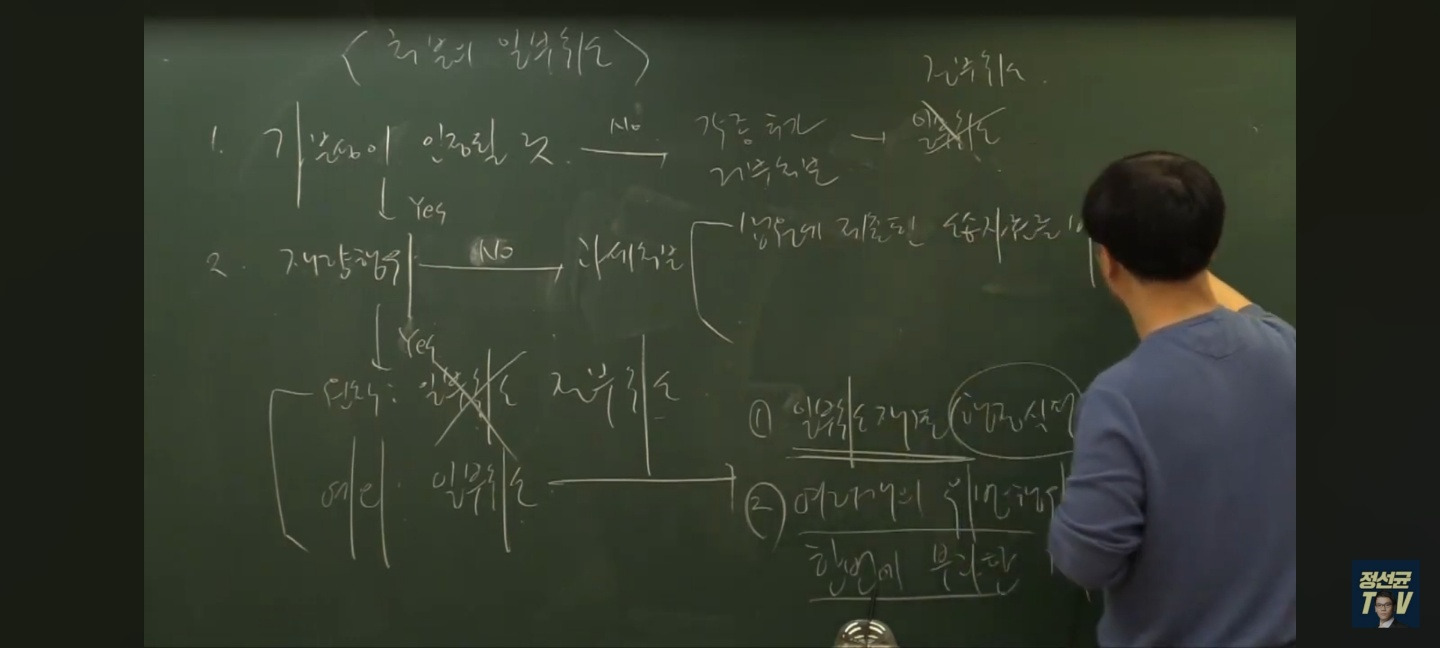 < 처분의 일부취소 >
전부취소.
1. 가분성이 인정될 것. No 각종 허가 → 일부취소
거부처분
↓ Yes
법원에 제출된 소송자료를
2. 재량행위 No 과세처분
↓ Yes
원칙: 일부취소 전부취소
① 일부취소재결
예외: 일부취소
② 여러개의 위반행위
한번에 부과한
정선균
TV